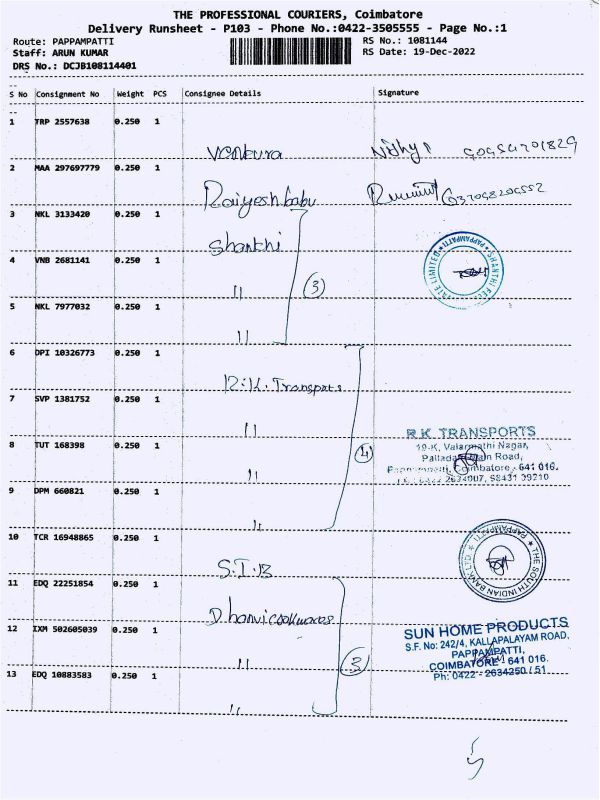 THE PROFESSIONAL COURIERS, Coimbatore
Delivery Runsheet - P103 - Phone No.:0422-3505555 - Page No.:1
Route: PAPPAMPATTI RS No.: 1081144
Staff: ARUN KUMAR RS Date: 19-Dec-2022
DRS No.: DCJB108114401
S No Consignment No Weight PCS Consignee Details Signature
1 TRP 2557638 0.250 1
2 MAA 297697779 0.250 1
3 NKL 3133420 0.250 1
Shanthi
4 VNB 2681141 0.250 1
" (3)
5 NKL 7977032 0.250 1
"
6 DPI 10326773 0.250 1
R.K. Transports
7 SVP 1381752 0.250 1
"
R.K. TRANSPORTS
19-K, Valarmathi Nagar,
8 TUT 168398 0.250 1
" (4)
Main Road,
Coimbatore - 641 016.
98431 39210
9 DPM 660821 0.250 1
"
10 TCR 16948865 0.250 1
S.I.B
THE SOUTH INDIAN BANK LTD
PAPPAMPATTI
11 EDQ 22251854 0.250 1
12 IXM 502605039 0.250 1
" (3)
SUN HOME PRODUCTS
S.F. No: 242/4, KALLAPALAYAM ROAD.
PAPPAMPATTI,
COIMBATORE - 641 016.
Ph: 0422 - 2634250 / 51
13 EDQ 10883583 0.250 1
"